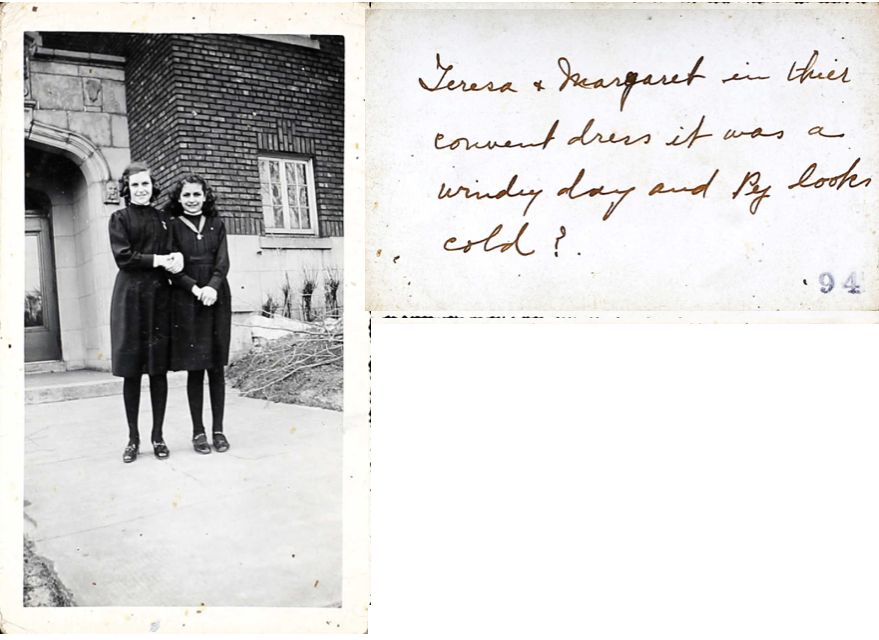 Teresa + Margaret in thier
convent dress it was a
windy day and Py looks
cold ?.
94